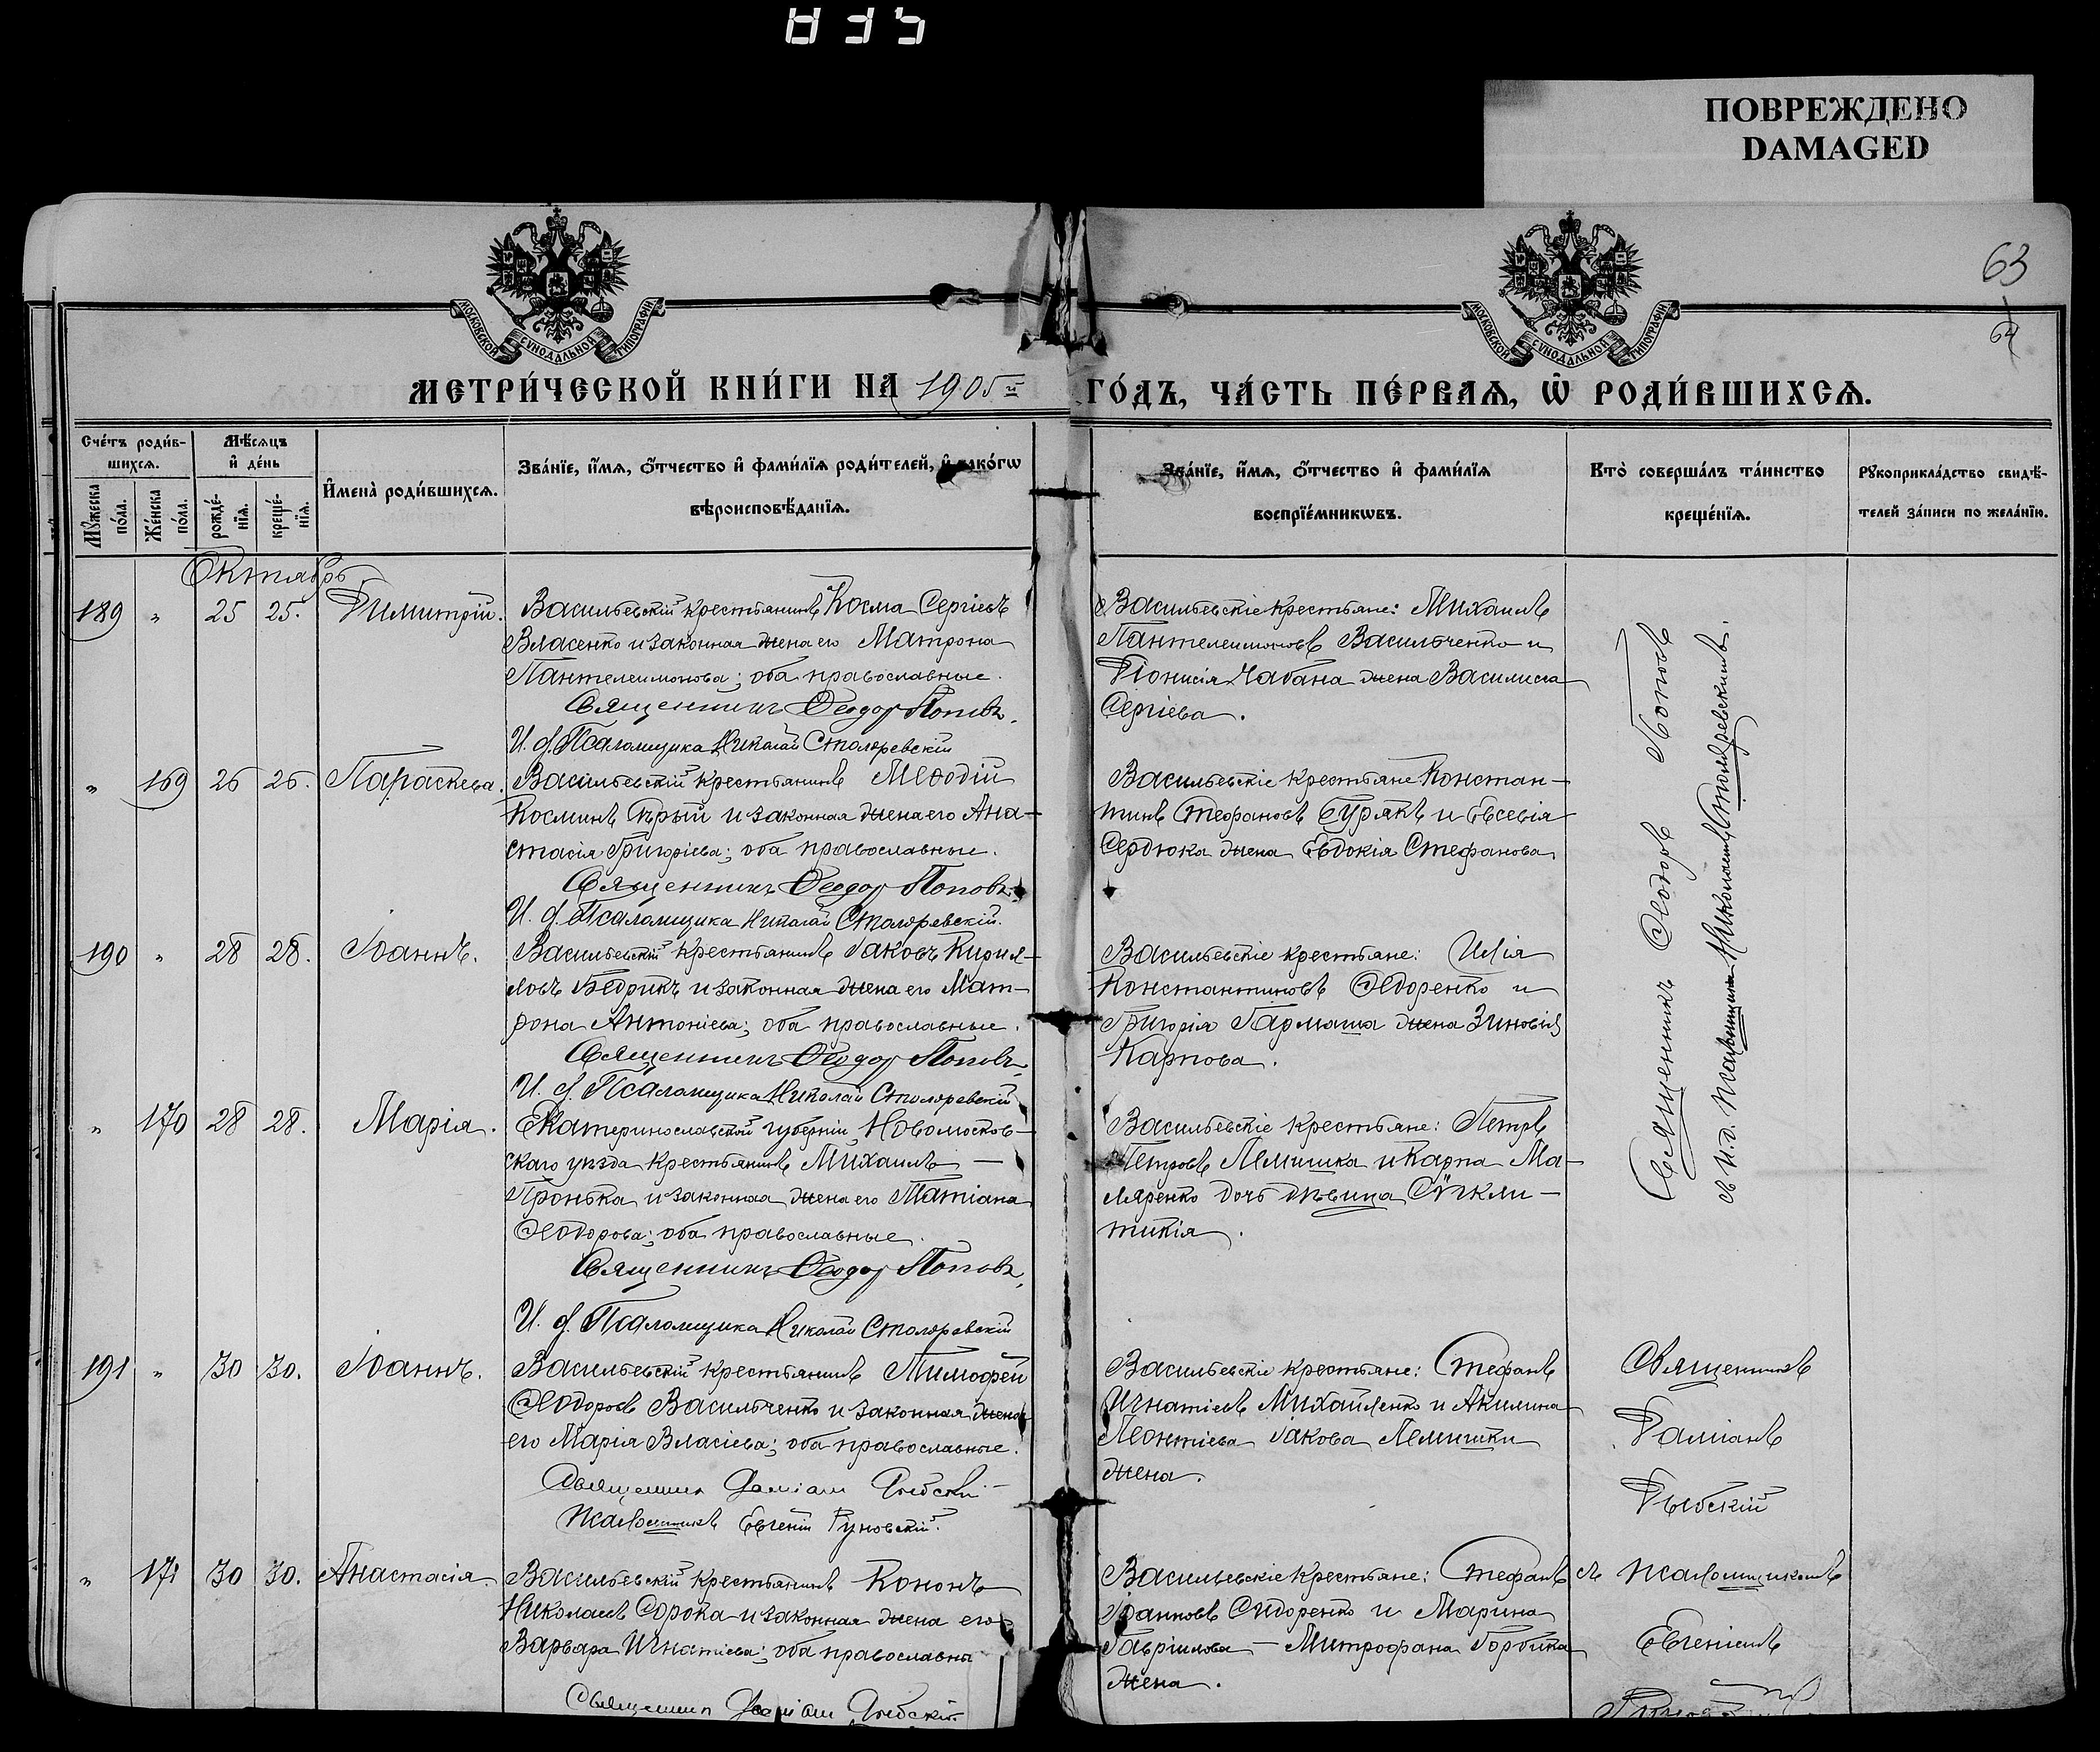 835
ПОВРЕЖДЕНО
DAMAGED
63
64
МОСКОВСКОЙ СѴНОДАЛЬНОЙ ТИПОГРАФІИ
МОСКОВСКОЙ СѴНОДАЛЬНОЙ ТИПОГРАФІИ
МЕТРИ́ЧЕСКОЙ КНИ́ГИ НА 1905й ГО́ДЪ, ЧА́СТЬ ПЕ́РВАѦ, Ѡ РОДИ́ВШИХСѦ.
Сче́тъ роди́в-
шихсѧ.
Мꙋ́жеска по́ла.
Же́нска по́ла.
Мѣ́сѧцъ
и҆ де́нь
рожде́-
нїѧ.
креще́-
нїѧ.
И҆мена̀ роди́вшихсѧ.
Зва́нїе, и҆́мѧ, ѻ҆́тчество и҆ фами́лїѧ роди́телей, и҆ како́гѡ
вѣроисповѣ́данїѧ.
Зва́нїе, и҆́мѧ, ѻ҆́тчество и҆ фами́лїѧ
воспрїе́мникѡвъ.
Кто̀ соверша́лъ та́инство
креще́нїѧ.
Рꙋкоприкла́дство свидѣ́-
телей за́писи по жела́нїю.
Октябрь
189 " 25 25. Димитрій.
Васильевскій крестьянинъ Косма Сергіевъ
Власенко и законная жена его Матрона
Пантелеимонова; оба православные.
Священникъ Ѳеодор Поповъ.
И. д. Псаломщика Николай Столяревскій
Васильевскіе крестьяне: Михаилъ
Пантелеимоновъ Васильченко и
Діонисія Чабана жена Василиса
Сергіева.
" 169 26 26. Параскева.
Васильевскій крестьянинъ Меѳодій
Косминъ Сѣрый и законная жена его Ана-
стасія Григоріева; оба православные.
Священникъ Ѳеодор Поповъ.
И. д. Псаломщика Николай Столяревскій.
Васильевскіе крестьяне Констан-
тинъ Стефановъ Бурякъ и Евсевія
Сердюка жена Евдокія Стефанова
190 " 28 28. Іоаннъ.
Васильевскій крестьянинъ Іаковъ Кирил-
ловъ Бедрикъ и законная жена его Мат-
рона Антоніева; оба православные.
Священникъ Ѳеодор Поповъ.
И. д. Псаломщика Николай Столяревскій
Васильевскіе крестьяне: Илія
Константиновъ Ѳедоренко и
Григорія Гармаша жена Зиновія
Карпова.
" 170 28 28. Марія.
Екатеринославской губерніи, Новомосков-
скаго уѣзда крестьянинъ Михаилъ —
Пронька и законная жена его Татіана
Ѳеодорова; оба православные.
Священникъ Ѳеодор Поповъ.
И. д. Псаломщика Николай Столяревскій
Васильевскіе крестьяне: Петръ
Петровъ Лемишка и Карпа Ма-
ляренко дочь дѣвица Сѵнкли-
тикія.
Священникъ Ѳеодоръ Поповъ
съ И. д. Псаломщика Николаемъ Столяревскимъ.
191 " 30 30. Іоаннъ.
Васильевскій крестьянинъ Тимоѳей
Ѳеодоровъ Васильченко и законная жена
его Марія Власіева; оба православные.
Священник Даміан Рыбскій
Псаломщикъ Евгеній Руновскій.
Васильевскіе крестьяне: Стефанъ
Игнатіевъ Михайленко и Акилина
Леонтіева Іакова Лемишки
жена.
Священникъ
Даміанъ
Рыбскій
" 171 30 30. Анастасія.
Васильевскій крестьянинъ Кононъ
Николаевъ Сорока и законная жена его
Варвара Игнатіева; оба православны
Священник Даміан Рыбскій.
Васильевскіе крестьяне: Стефанъ
Іоанновъ Сидоренко и Марина
Гавріилова — Митрофана Горбика
жена.
съ Псаломщикомъ
Евгеніемъ